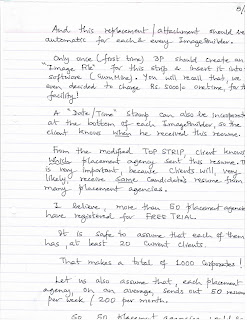 8/
And this replacement/attachment should be
automatic for each & every ImageBuilder.
Only once (first time) 3P should create an
"Image File" for this strip & insert it into
software (GuruMine). You will recall that we
even decided to charge Rs 5000/= onetime, for this
facility!
A "Date/Time" stamp can also be incorporated
at the bottom of each ImageBuilder, so the
client knows when he received this resume.
From the modified TOP STRIP, client knows
Which placement agency sent this resume. This
is very important, because clients will, very
likely, receive same candidates resume from
many placement agencies.
I believe, more than 50 placement agencies
have registered for FREE TRIAL
It is safe to assume that each of them
has, at least 20 current clients.
That makes a total of 1000 corporates!
Let us also assume that, each placement
agency, on an average, sends out 50 resumes
per week / 200 per month.
So 50 placement agencies